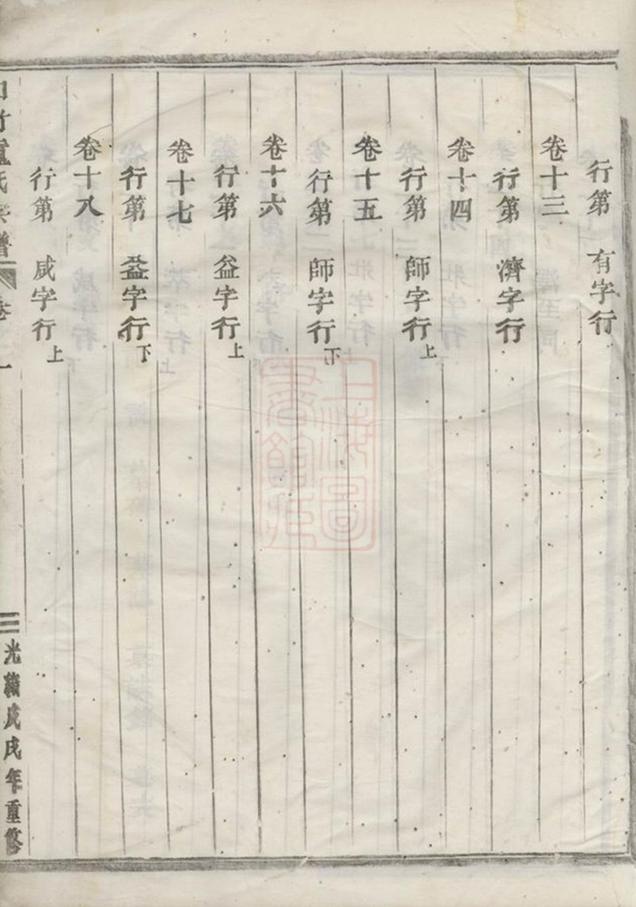 行第 有字行
卷十三
行第 濟字行
卷十四
行第 師字行上
卷十五
行第 師字行下
卷十六
行第 益字行上
卷十七
行第 益字行下
卷十八
行第 咸字行上
竹盧氏宗譜 卷一
三 光緒戊戌年重修